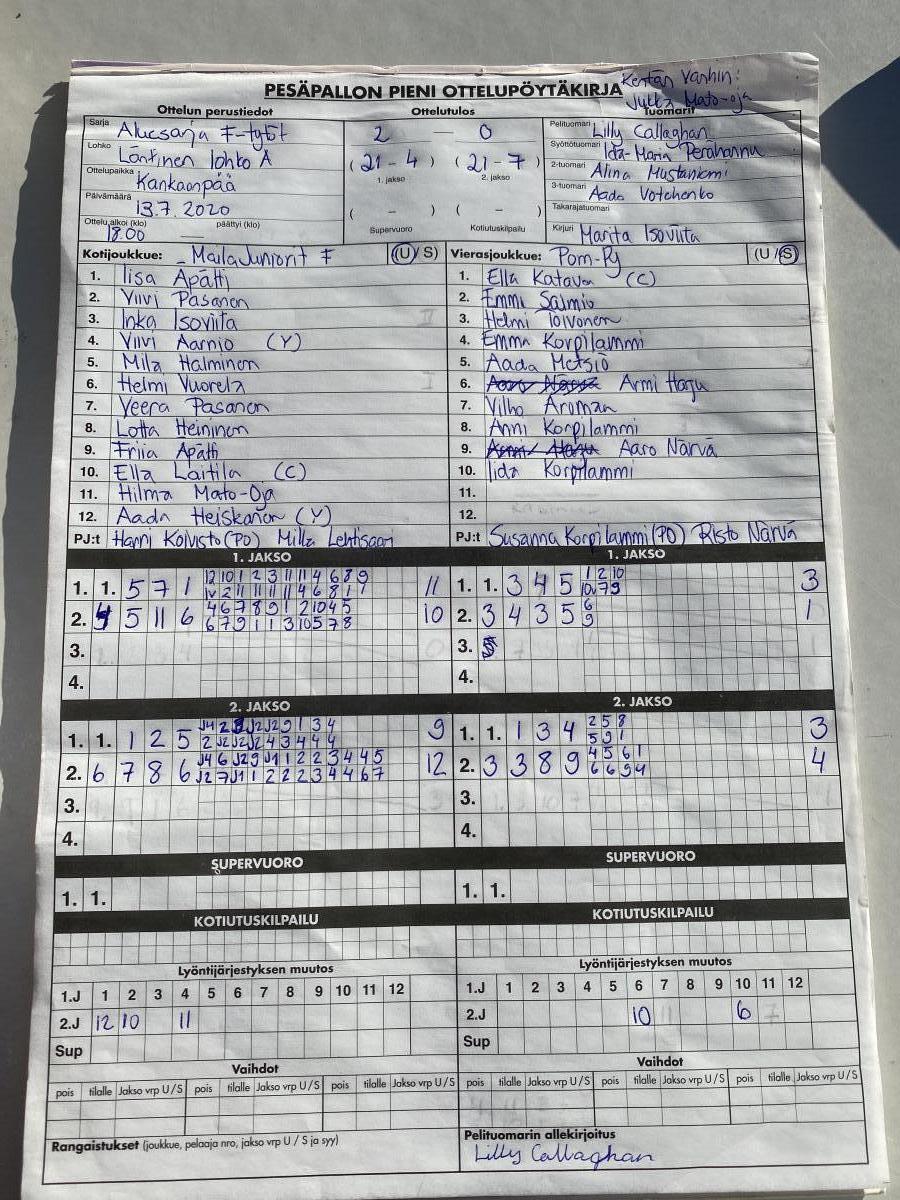 PESÄPALLON PIENI OTTELUPÖYTÄKIRJA
Kentän Vanhin:
Jukka Mato-oja
Ottelun perustiedot
Sarja Aluesarja F-tytöt
Lohko Läntinen lohko A
Ottelupaikka Kankaanpää
Päivämäärä 13.7. 2020
Ottelu alkoi (klo) päättyi (klo)
18.00 —
Ottelutulos
2 — 0
( 21 - 4 ) ( 21 - 7 )
1. jakso 2. jakso
( - ) ( - )
Supervuoro Kotiutuskilpailu
Tuomarit
Pelituomari Lilly Callaghan
Syöttötuomari Ida-Maria Perähannu
2-tuomari Alina Mustaniemi
3-tuomari Aada Votchenko
Takarajatuomari
Kirjuri Marita Isoviita
Kotijoukkue: MailaJuniorit F (U/S)
1. Iisa Apätti
2. Viivi Pasanen
3. Inka Isoviita
4. Viivi Aarnio (Y)
5. Mila Halminen
6. Helmi Vuorela
7. Veera Pasanen
8. Lotta Heininen
9. Friia Apätti
10. Ella Laitila (C)
11. Hilma Mato-Oja
12. Aada Heiskanen (Y)
PJ:t Harri Koivisto (PO) Milla Lehtisaari
Vierasjoukkue: Pom-Py (U/S)
1. Ella Katava (C)
2. Emmi Salmio
3. Helmi Toivonen
4. Emma Korpilammi
5. Aada Metsiö
6. Armi Harju
7. Vilho Aroman
8. Anni Korpilammi
9. Aaro Närvä
10. Iida Korpilammi
11.
12.
PJ:t Susanna Korpilammi (PO) Risto Närvä
1. JAKSO
1. 1. 5 7 1 12 10 1 2 3 11 11 4 6 8 9 11
2. 5 11 6 4 6 7 8 9 1 2 10 4 5 10
6 7 9 1 1 3 10 5 7 8
3.
4.
1. JAKSO
1. 1. 3 4 5 1 2 10 3
2. 3 4 3 5 6 1
9
3.
4.
2. JAKSO
1. 1. 1 2 5 9
2 J2 J2 J2 4 3 4 4 4
2. 6 7 8 6 J4 6 J2 9 J1 1 2 2 3 4 4 5 12
J2 7 J1 1 2 2 2 3 4 4 6 7
3.
4.
2. JAKSO
1. 1. 1 3 4 2 5 8 3
5 9 1
2. 3 3 8 9 4 5 6 1 4
6 6 9 4
3.
4.
SUPERVUORO
1. 1.
SUPERVUORO
1. 1.
KOTIUTUSKILPAILU
KOTIUTUSKILPAILU
Lyöntijärjestyksen muutos
1.J 1 2 3 4 5 6 7 8 9 10 11 12
2.J 12 10 11
Sup
Lyöntijärjestyksen muutos
1.J 1 2 3 4 5 6 7 8 9 10 11 12
2.J 10 6
Sup
Vaihdot
pois tilalle Jakso vrp U/S pois tilalle Jakso vrp U/S pois tilalle Jakso vrp U/S
Vaihdot
pois tilalle Jakso vrp U/S pois tilalle Jakso vrp U/S pois tilalle Jakso vrp U/S
Rangaistukset (joukkue, pelaaja nro, jakso vrp U / S ja syy)
Pelituomarin allekirjoitus
Lilly Callaghan